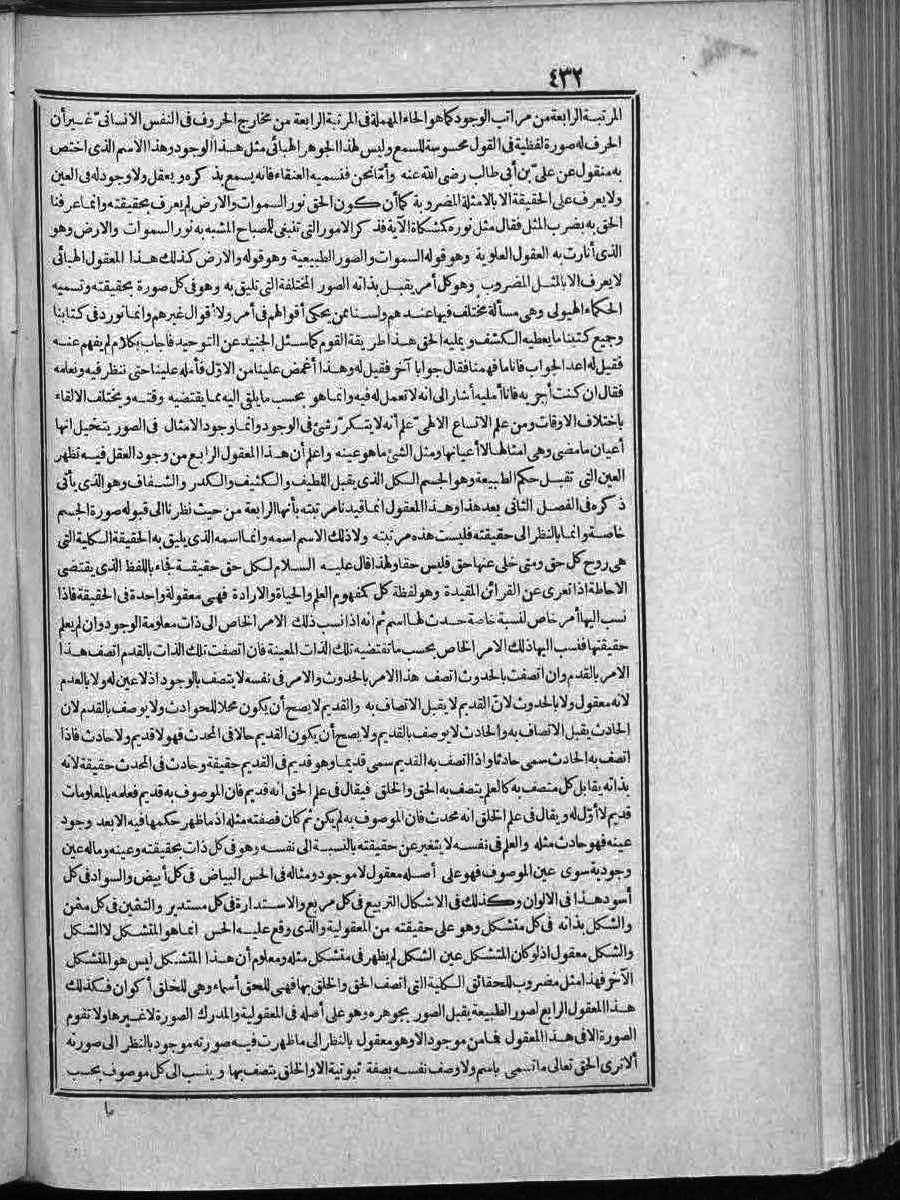 ٤٣٢
المرتبة الرابعة من مراتب الوجود كما هو الحاء المهملة فى المرتبة الرابعة من مخارج الحروف فى النفس الانسانى غير أن
الحرف له صورة لفظية فى القول محسوسة للسمع وليس لهذا الجوهر الهبائى مثل هذا الوجود وهذا الاسم الذى اختص
به منقول عن علىّ بن أبى طالب رضى الله عنه وأمّا نحن فنسميه العنقاء فانه يسمع بذكره ويعقل ولا وجود له فى العين
ولا يعرف على الحقيقة الا بالامثلة المضروبة كما أن كون الحق نور السموات والارض لم يعرف بحقيقته وانما عرفنا
الحق به بضرب المثل فقال مثل نوره كمشكاة الآية فذكر الامور التى تنبغى للمصباح المشبه به نور السموات والارض وهو
الذى أنارت به العقول العلوية وهو قوله السموات والصور الطبيعية وهو قوله والارض كذلك هذا المعقول الهبائى
لا يعرف الا بالمثل المضروب وهو كل أمر يقبل بذاته الصور المختلفة التى تليق به وهو فى كل صورة بحقيقته وتسميه
الحكماء الهيولى وهى مسألة مختلف فيها عندهم ولسنا ممن يحكى أقوالهم فى أمر ولا أقوال غيرهم وانما نورد فى كتابنا
وجميع كتبنا ما يعطيه الكشف ويمليه الحق هذا طريقة القوم كما سئل الجنيد عن التوحيد فأجاب بكلام لم يفهم عنه
فقيل له اعد الجواب فانا ما فهمنا فقال جوابا آخر فقيل له وهذا أغمض علينا من الاوّل فأمله علينا حتى ننظر فيه ونعلمه
فقال ان كنت أجريه فانا أمليه أشار الى انه لا تعمل له فيه وانما هو بحسب ما يلقى اليه مما يقتضيه وقته ويختلف الالقاء
باختلاف الاوقات ومن علم الاتساع الالهىّ علم أنه لا يتكرّر شئ فى الوجود وانما وجود الامثال فى الصور يتخيل انها
أعيان ما مضى وهى امثالها لا أعيانها ومثل الشئ ما هو عينه واعلم أن هذا المعقول الرابع من وجود العقل فيه تظهر
العين التى تقبل حكم الطبيعة وهو الجسم الكل الذى يقبل اللطيف والكثيف والكدر والشفاف وهو الذى يأتى
ذكره فى الفصل الثانى بعد هذا وهذا المعقول انما قيدنا مرتبته بأنها الرابعة من حيث نظرنا الى قبوله صورة الجسم
خاصة وانما بالنظر الى حقيقته فليست هذه مرتبته ولا ذلك الاسم اسمه وانما اسمه الذى يليق به الحقيقة الكلية التى
هى روح كل حق ومتى خلى عنها حق فليس حقا ولهذا قال عليه السلام لكل حق حقيقة فجاء باللفظ الذى يقتضى
الاحاطة اذا تعرى عن القرائن المقيدة وهو لفظة كل كمفهوم العلم والحياة والارادة فهى معقولة واحدة فى الحقيقة فاذا
نسب اليها أمر خاص لنسبة خاصة حدث لها اسم ثم انه اذا نسب ذلك الامر الخاص الى ذات معلومة الوجود وان لم يعلم
حقيقتها فنسب اليها ذلك الامر الخاص بحسب ما تقتضيه تلك الذات المعينة فان اتصفت تلك الذات بالقدم اتصف هذا
الامر بالقدم وان اتصفت بالحدوث اتصف هذا الامر بالحدوث والامر فى نفسه لا يتصف بالوجود اذ لا عين له ولا بالعدم
لانه معقول ولا بالحدوث لانّ القديم لا يقبل الاتصاف به والقديم لا يصح أن يكون محلا للحوادث ولا يوصف بالقدم لان
الحادث يقبل الاتصاف به والحادث لا يوصف بالقديم ولا يصح أن يكون القديم حالا فى المحدث فهو لا قديم ولا حادث فاذا
اتصف به الحادث سمى حادثا واذا اتصف به القديم سمى قديما وهو قديم فى القديم حقيقة وحادث فى المحدث حقيقة لانه
بذاته يقابل كل متصف به كالعلم يتصف به الحق والخلق فيقال فى علم الحق انه قديم فان الموصوف به قديم فعلمه بالمعلومات
قديم لا أوّل له ويقال فى علم الخلق انه محدث فان الموصوف به لم يكن ثم كان فصفته مثله اذ ما ظهر حكمها فيه الا بعد وجود
عينه فهو حادث مثله والعلم فى نفسه لا يتغير عن حقيقته بالنسبة الى نفسه وهو فى كل ذات بحقيقته وعينه وماله عين
وجودية سوى عين الموصوف فهو على أصله معقول لا موجود ومثاله فى الحس البياض فى كل أبيض والسواد فى كل
أسود هذا فى الالوان وكذلك فى الاشكال التربيع فى كل مربع والاستدارة فى كل مستدير والتثمين فى كل مثمن
والشكل بذاته فى كل متشكل وهو على حقيقته من المعقولية والذى وقع عليه الحس انما هو المتشكل لا الشكل
والشكل معقول اذ لو كان المتشكل عين الشكل لم يظهر فى متشكل مثله ومعلوم أن هذا المتشكل ليس هو المتشكل
الآخر فهذا مثل مضروب للحقائق الكلية التى اتصف الحق والخلق بها فهى للحق أسماء وهى للخلق أكوان فكذلك
هذا المعقول الرابع لصور الطبيعة يقبل الصور بجوهره وهو على أصله فى المعقولية والمدرك الصورة لا غيرها ولا تقوم
الصورة الا فى هذا المعقول فما من موجود الا وهو معقول بالنظر الى ما ظهرت فيه صورته موجود بالنظر الى صورته
ألا ترى الحق تعالى ما تسمى باسم ولا وصف نفسه بصفة ثبوتية الا والخلق يتصف بها وينسب الى كل موصوف بحسب